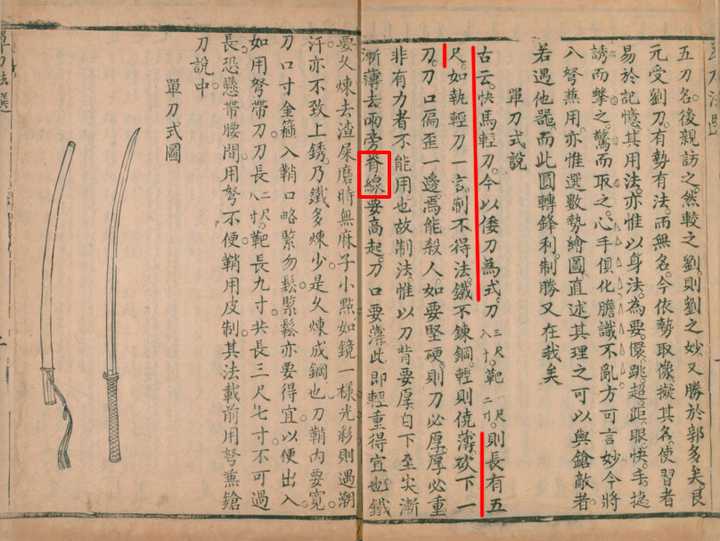 五刀名後親訪之然較之劉則劉之妙又勝於郭多矣良
元受劉刀有勢有法而無名今依勢取像擬其名使習者
易於記憶其用法亦惟以身法為要儇跳超距眼快手捷
誘而擊之驚而取之心手俱化膽識不亂方可言妙今將
八弩兼用亦惟選數勢繪圖直述其理之可以與鎗敵者
若遇他器而此圓轉鋒利制勝又在我矣
單刀式說
古云快馬輕刀今以倭刀為式刀三尺八寸靶一尺二寸則長有五
尺如執輕刀一言制不得法鐵不鍊鋼輕則僥薄砍下一
刀刀口偏歪一邊焉能殺人如要堅硬則刀必厚厚必重
非有力者不能用也故制法惟以刀背要厚自下至尖漸
漸薄去兩旁脊線要高起刀口要薄此即輕重得宜也鐵
要久煉去渣屎磨時無麻子小點如鏡一樣光彩則遇潮
汗亦不致上銹乃鐵多煉少是久煉成鋼也刀鞘內要寬
刀口寸金箍入鞘口略緊勿鬆緊鬆亦要得宜以便出入
如用弩帶刀刀長二尺八寸靶長九寸共長三尺七寸不可過
長恐懸帶腰間用弩不便鞘用皮制其法載前用弩兼鎗
刀說中
單刀式圖